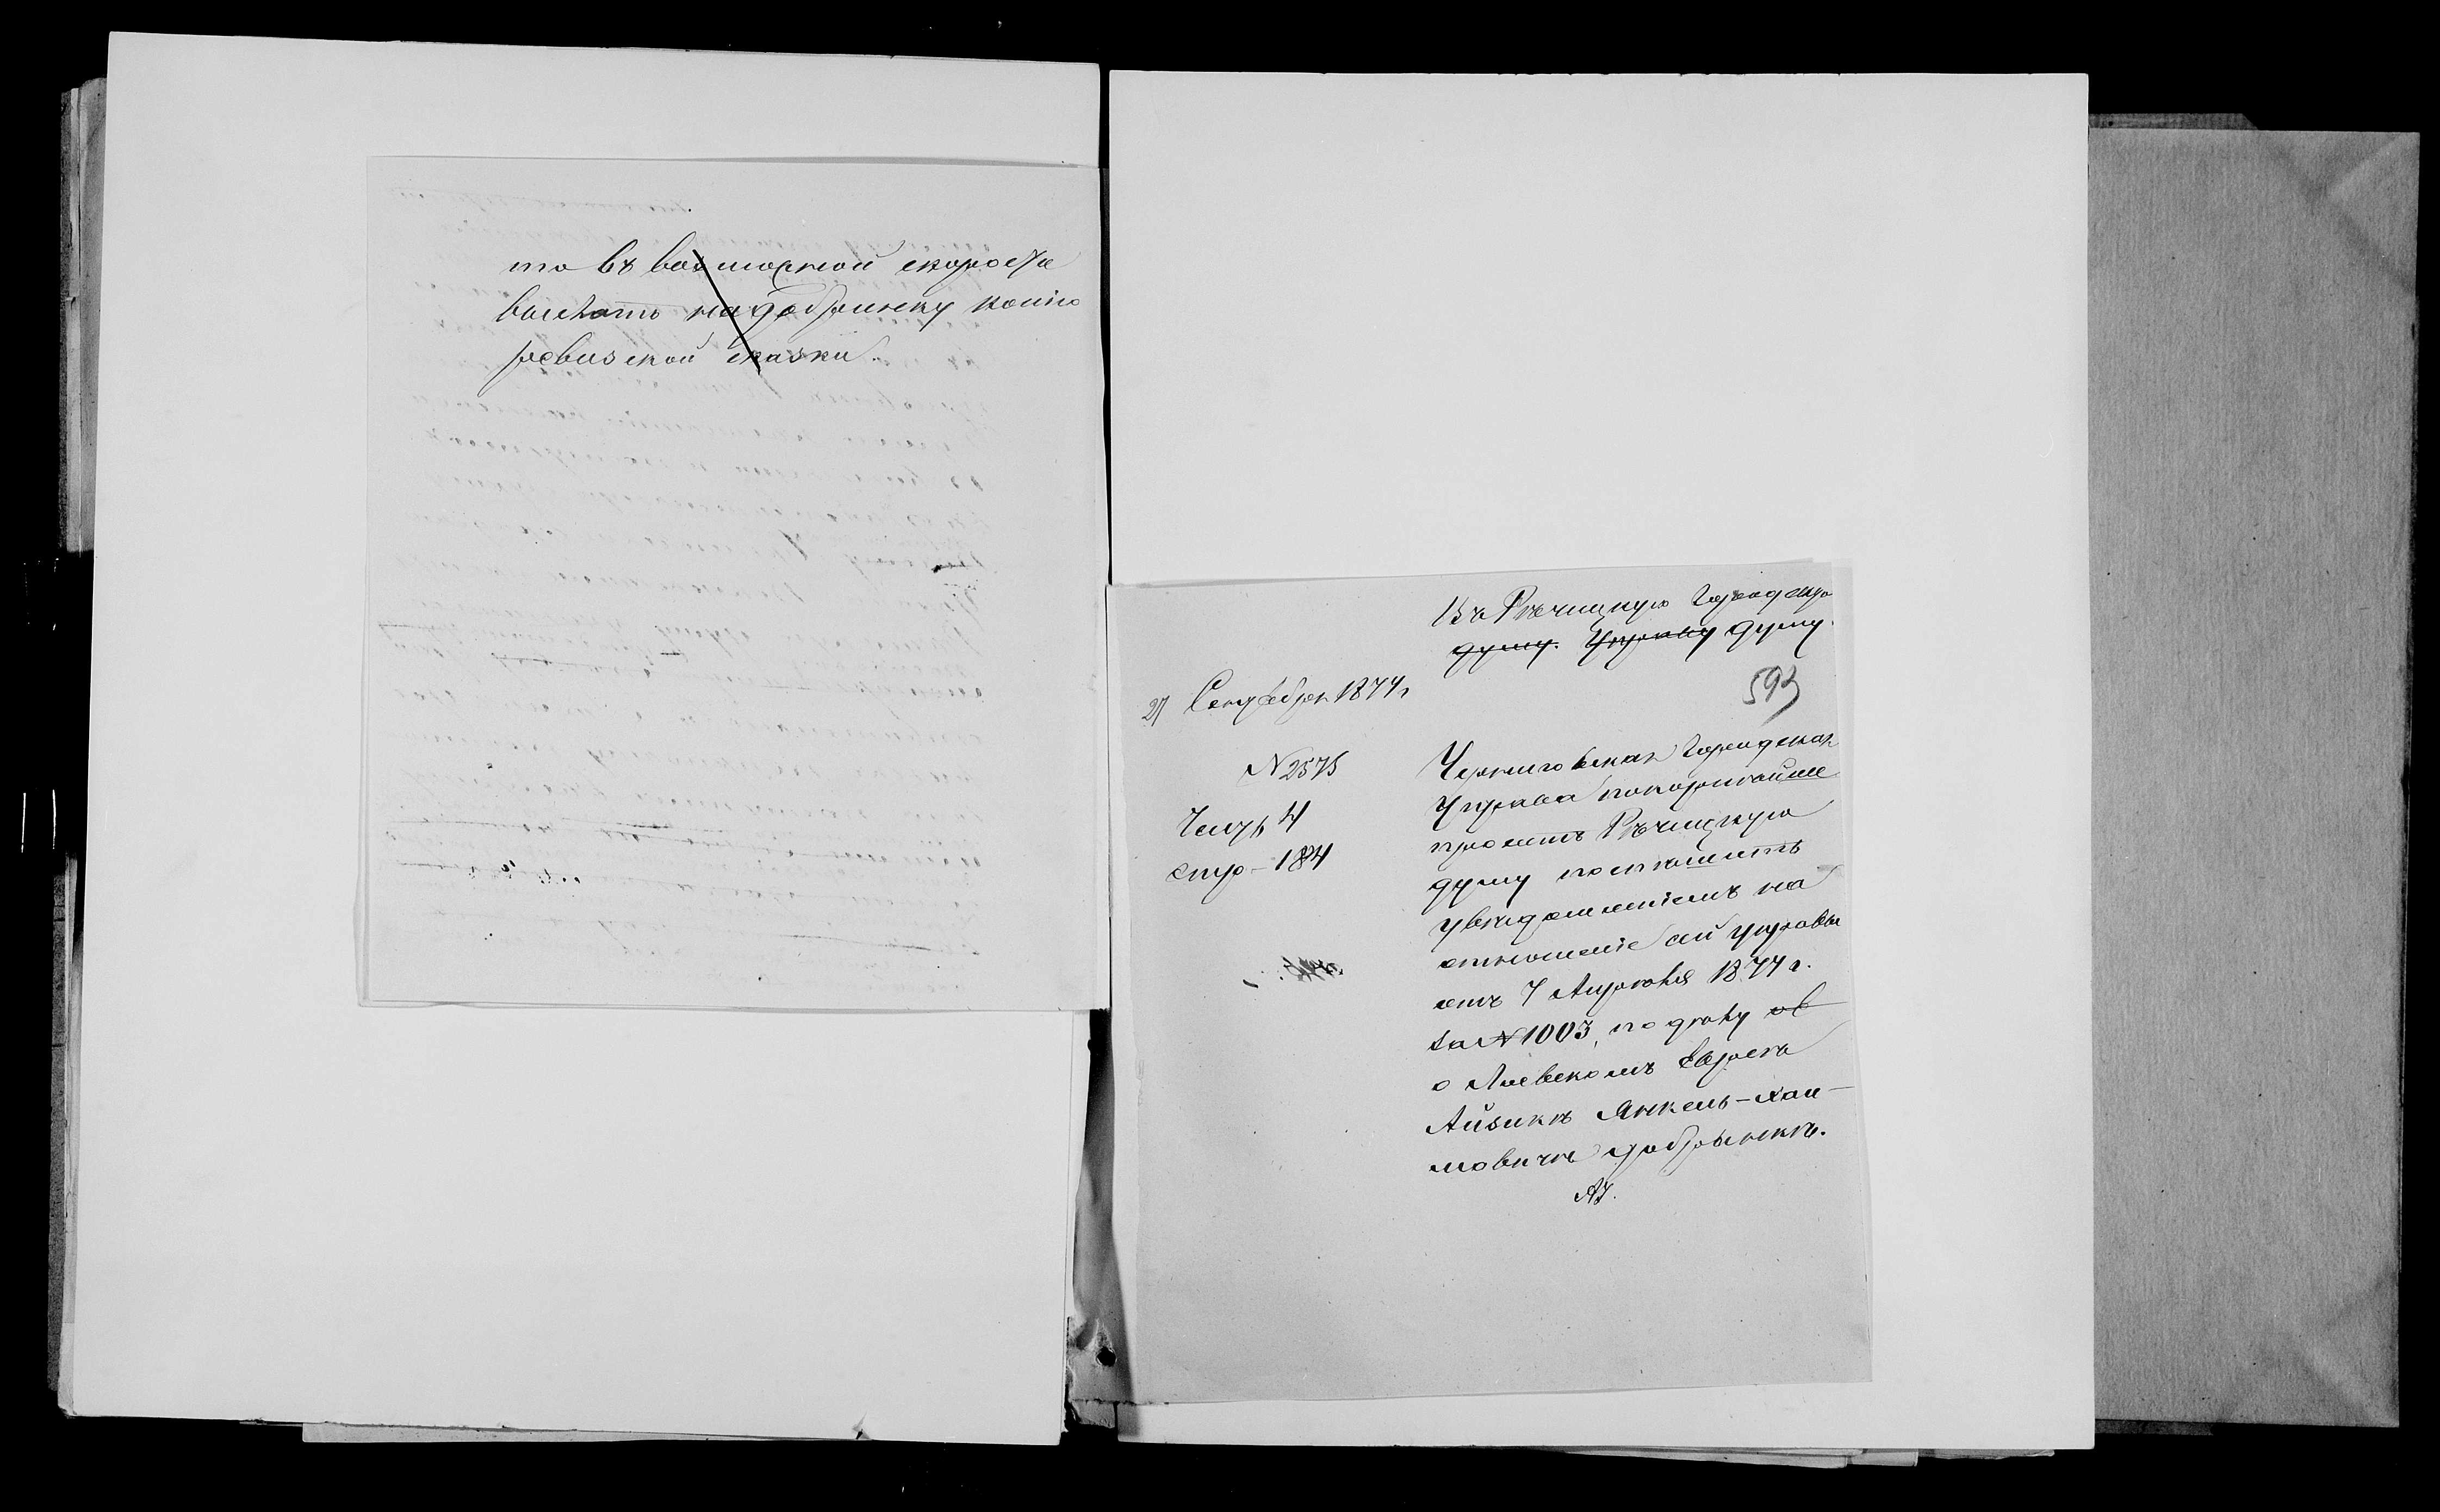 то въ возможной скорости
выслать на Добринеку копію
ревизской сказки.
Въ Рѣчицкую Городскую
Думу. Управу Думу.
593
21 Сентября 1874 г
N 2575
Часть 4
стр - 184
Черниговская Городская
Управа покорнѣйше
проситъ Рѣчицкую
Думу поспѣшить
увѣдомленіемъ на
отношеніе сей Управы
отъ 7 Апрѣля 1874 г.
за N 1003, по дѣлу об
о Любескомъ Евреѣ
Айзикѣ Янкель-Хаи-
мовичѣ Добрынекѣ.